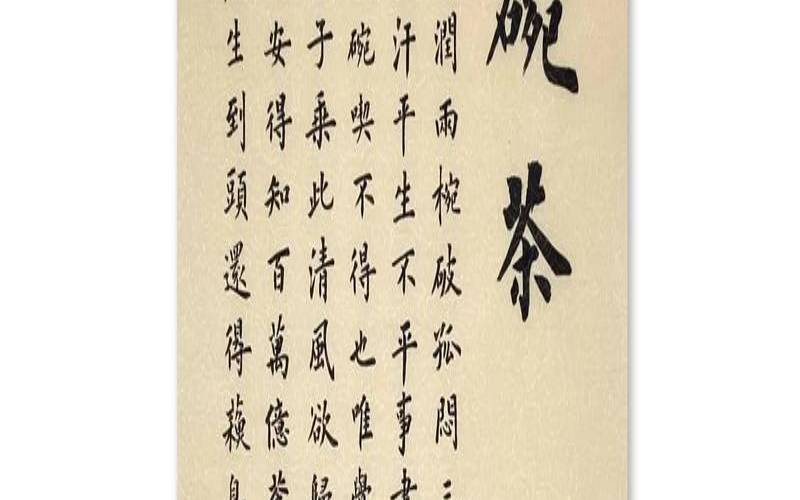 碗茶
潤兩椀破孤悶三
汗平生不平事盡
碗喫不得也唯覺
子乘此清風欲歸
安得知百萬億蒼
生到頭還得蘓息